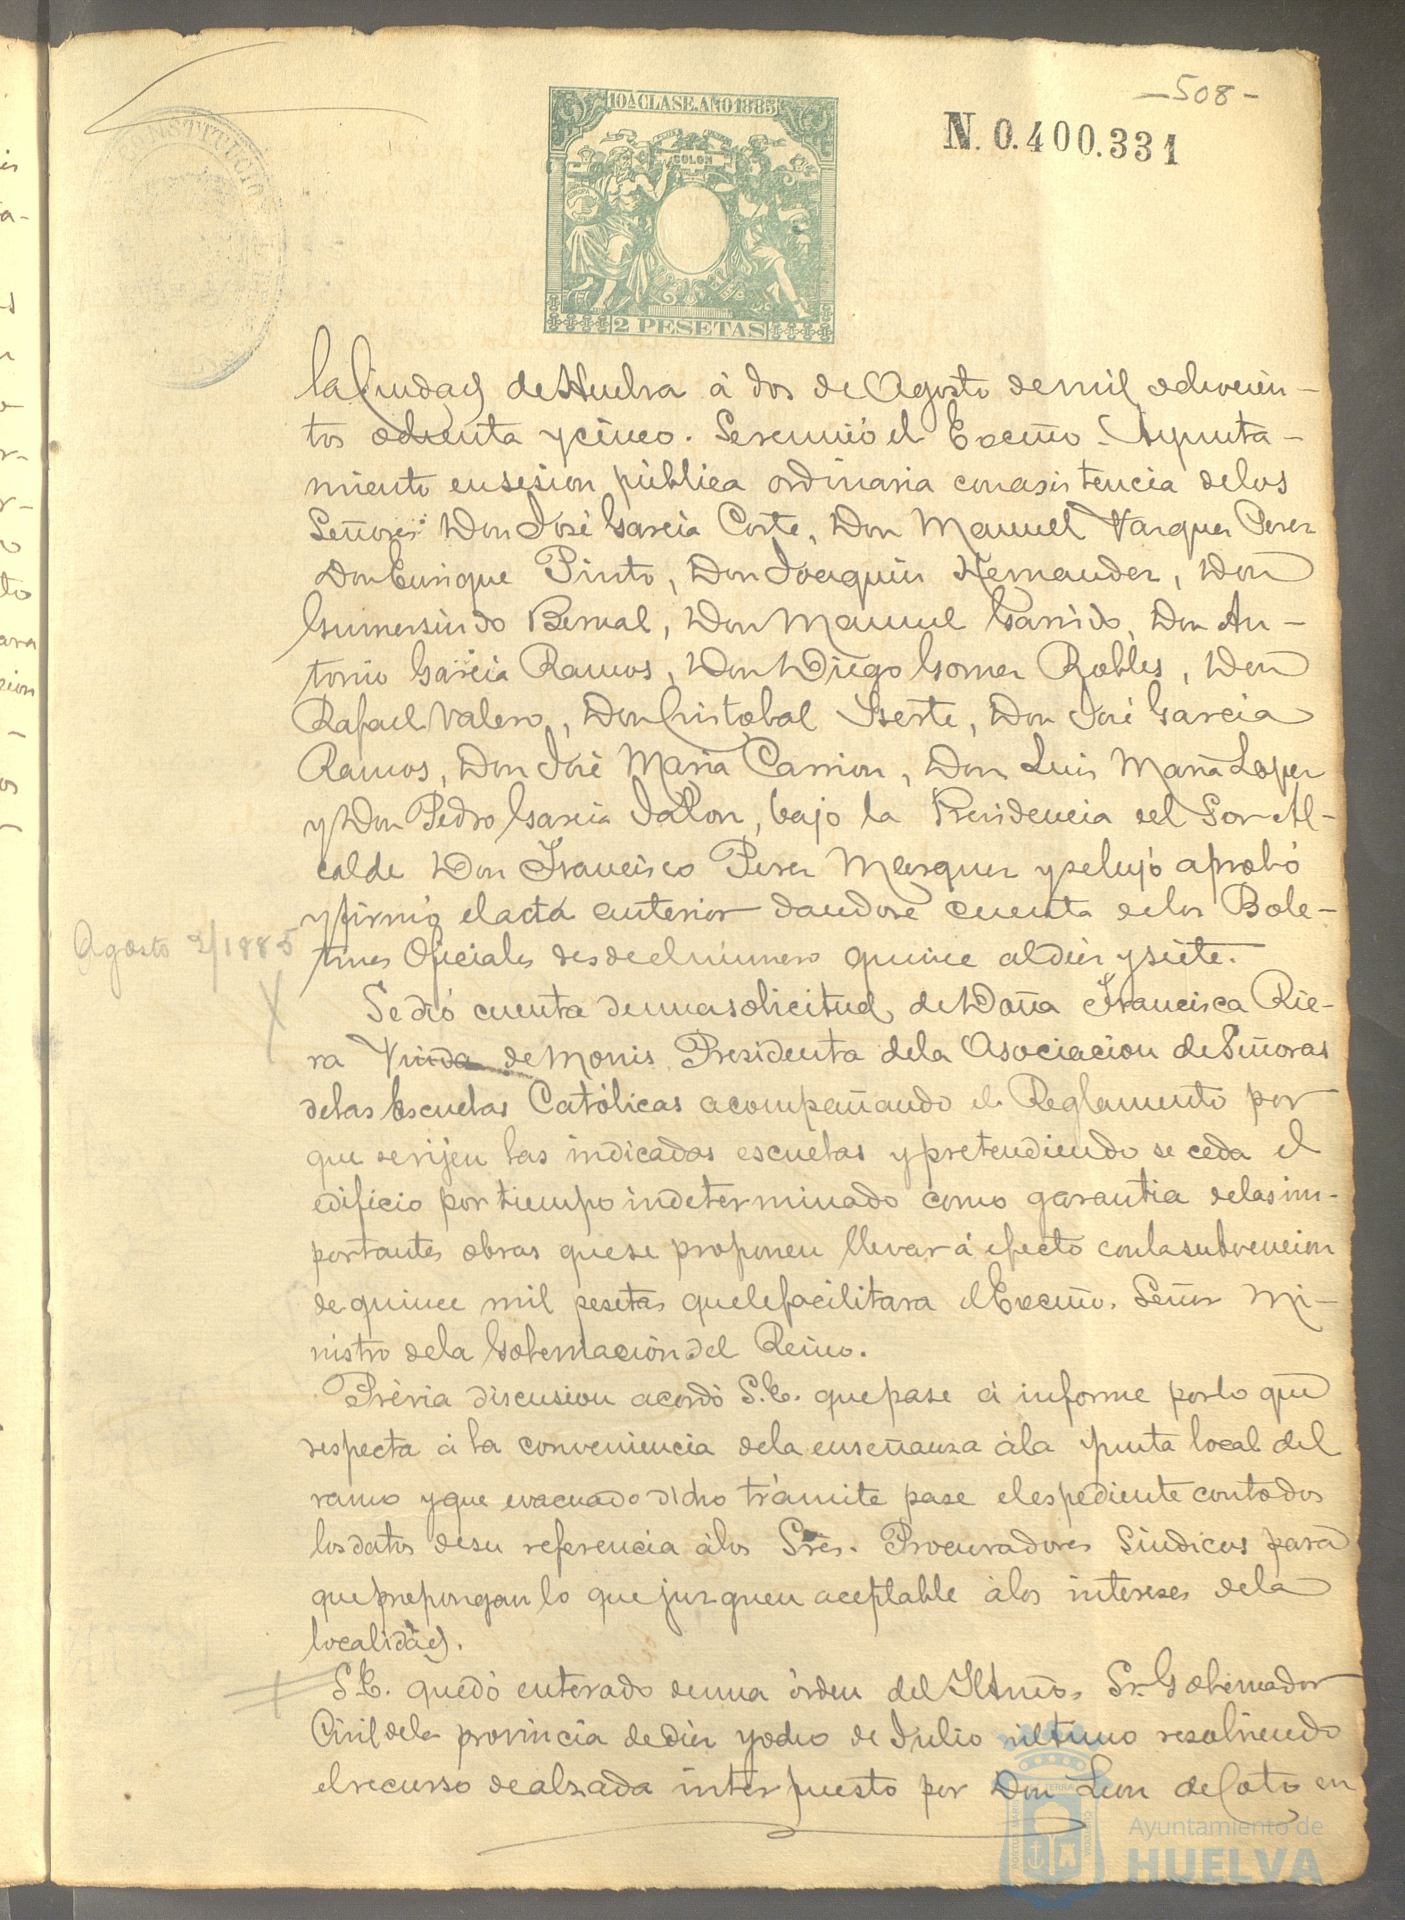 -508-
10ª CLASE. AÑO 1885
N. 0.400.331
COLON
CONSTITUCIO
2 PESETAS
la Ciudad de Huelva á dos de Agosto de mil ochocien-
tos ochenta y cinco. Se reunió el Excmo. Ayunta-
miento en sesion pública ordinaria con asistencia de los
Señores Don José Garcia Corte, Don Manuel Vazquez Perez
Don Enrique Pinto, Don Joaquin Hernandez, Don
Gumersindo Bernal, Don Manuel Garrido, Don An-
tonio Garcia Ramos, Don Diego Gomez Robles, Don
Rafael Valero, Don Cristobal Yserte, Don José Garcia
Ramos, Don José Maria Carrion, Don Luis Maria Lopez
y Don Pedro Garcia Jalon, bajo la Presidencia del Sor Al-
calde Don Francisco Perez Marquez y se leyó aprobó
y firmó el acta anterior dandose cuenta de los Bole-
Agosto 2/1885
tines Oficiales desde el número quince al diez y siete.
Se dió cuenta de una solicitud de Doña Francisca Rie-
ra Viuda de Monis Presidenta de la Asociacion de Señoras
de las Escuelas Católicas acompañando el Reglamento por
que se rijen las indicadas escuelas y pretendiendo se ceda el
edificio por tiempo indeterminado como garantia de las im-
portantes obras que se proponen llevar á efecto con la subvencion
de quince mil pesetas que le facilitara el Excmo. Señor Mi-
nistro de la Gobernacion del Reino.
Prévia discusion acordó S.E. que pase á informe por lo que
respecta á la conveniencia de la enseñanza á la junta local del
ramo y que evacuado dicho trámite pase el espediente con todos
los datos de su referencia á los Sres. Procuradores Síndicos para
que propongan lo que juzguen aceptable á los intereses de la
localidad.
S.E. quedó enterado de una órden del Iltmo. Sr. Gobernador
Civil de la provincia de diez y ocho de Julio último resolviendo
el recurso de alzada interpuesto por Don Leon de Coto en
Ayuntamiento de
HUELVA